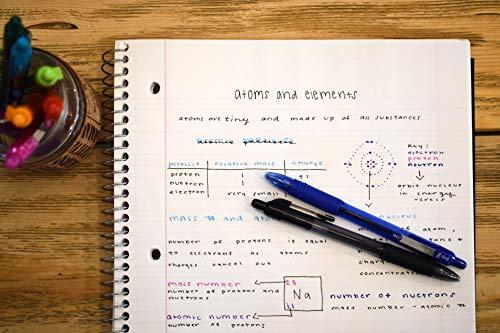 atoms and elements
atoms are tiny and made up of all substances
particle relative mass charge
proton 1
nuetron 1
electron very small
Key:
electron
proton
neutron
orbit nucleus
in energy
levels
mass # and
nucleus
number of protons is equal
to electrons so atoms
charges cancel out
mass number
number of protons and
nuetrons
atomic number
number of protons
23
11
Na
number of nuetrons
mass number - atomic #